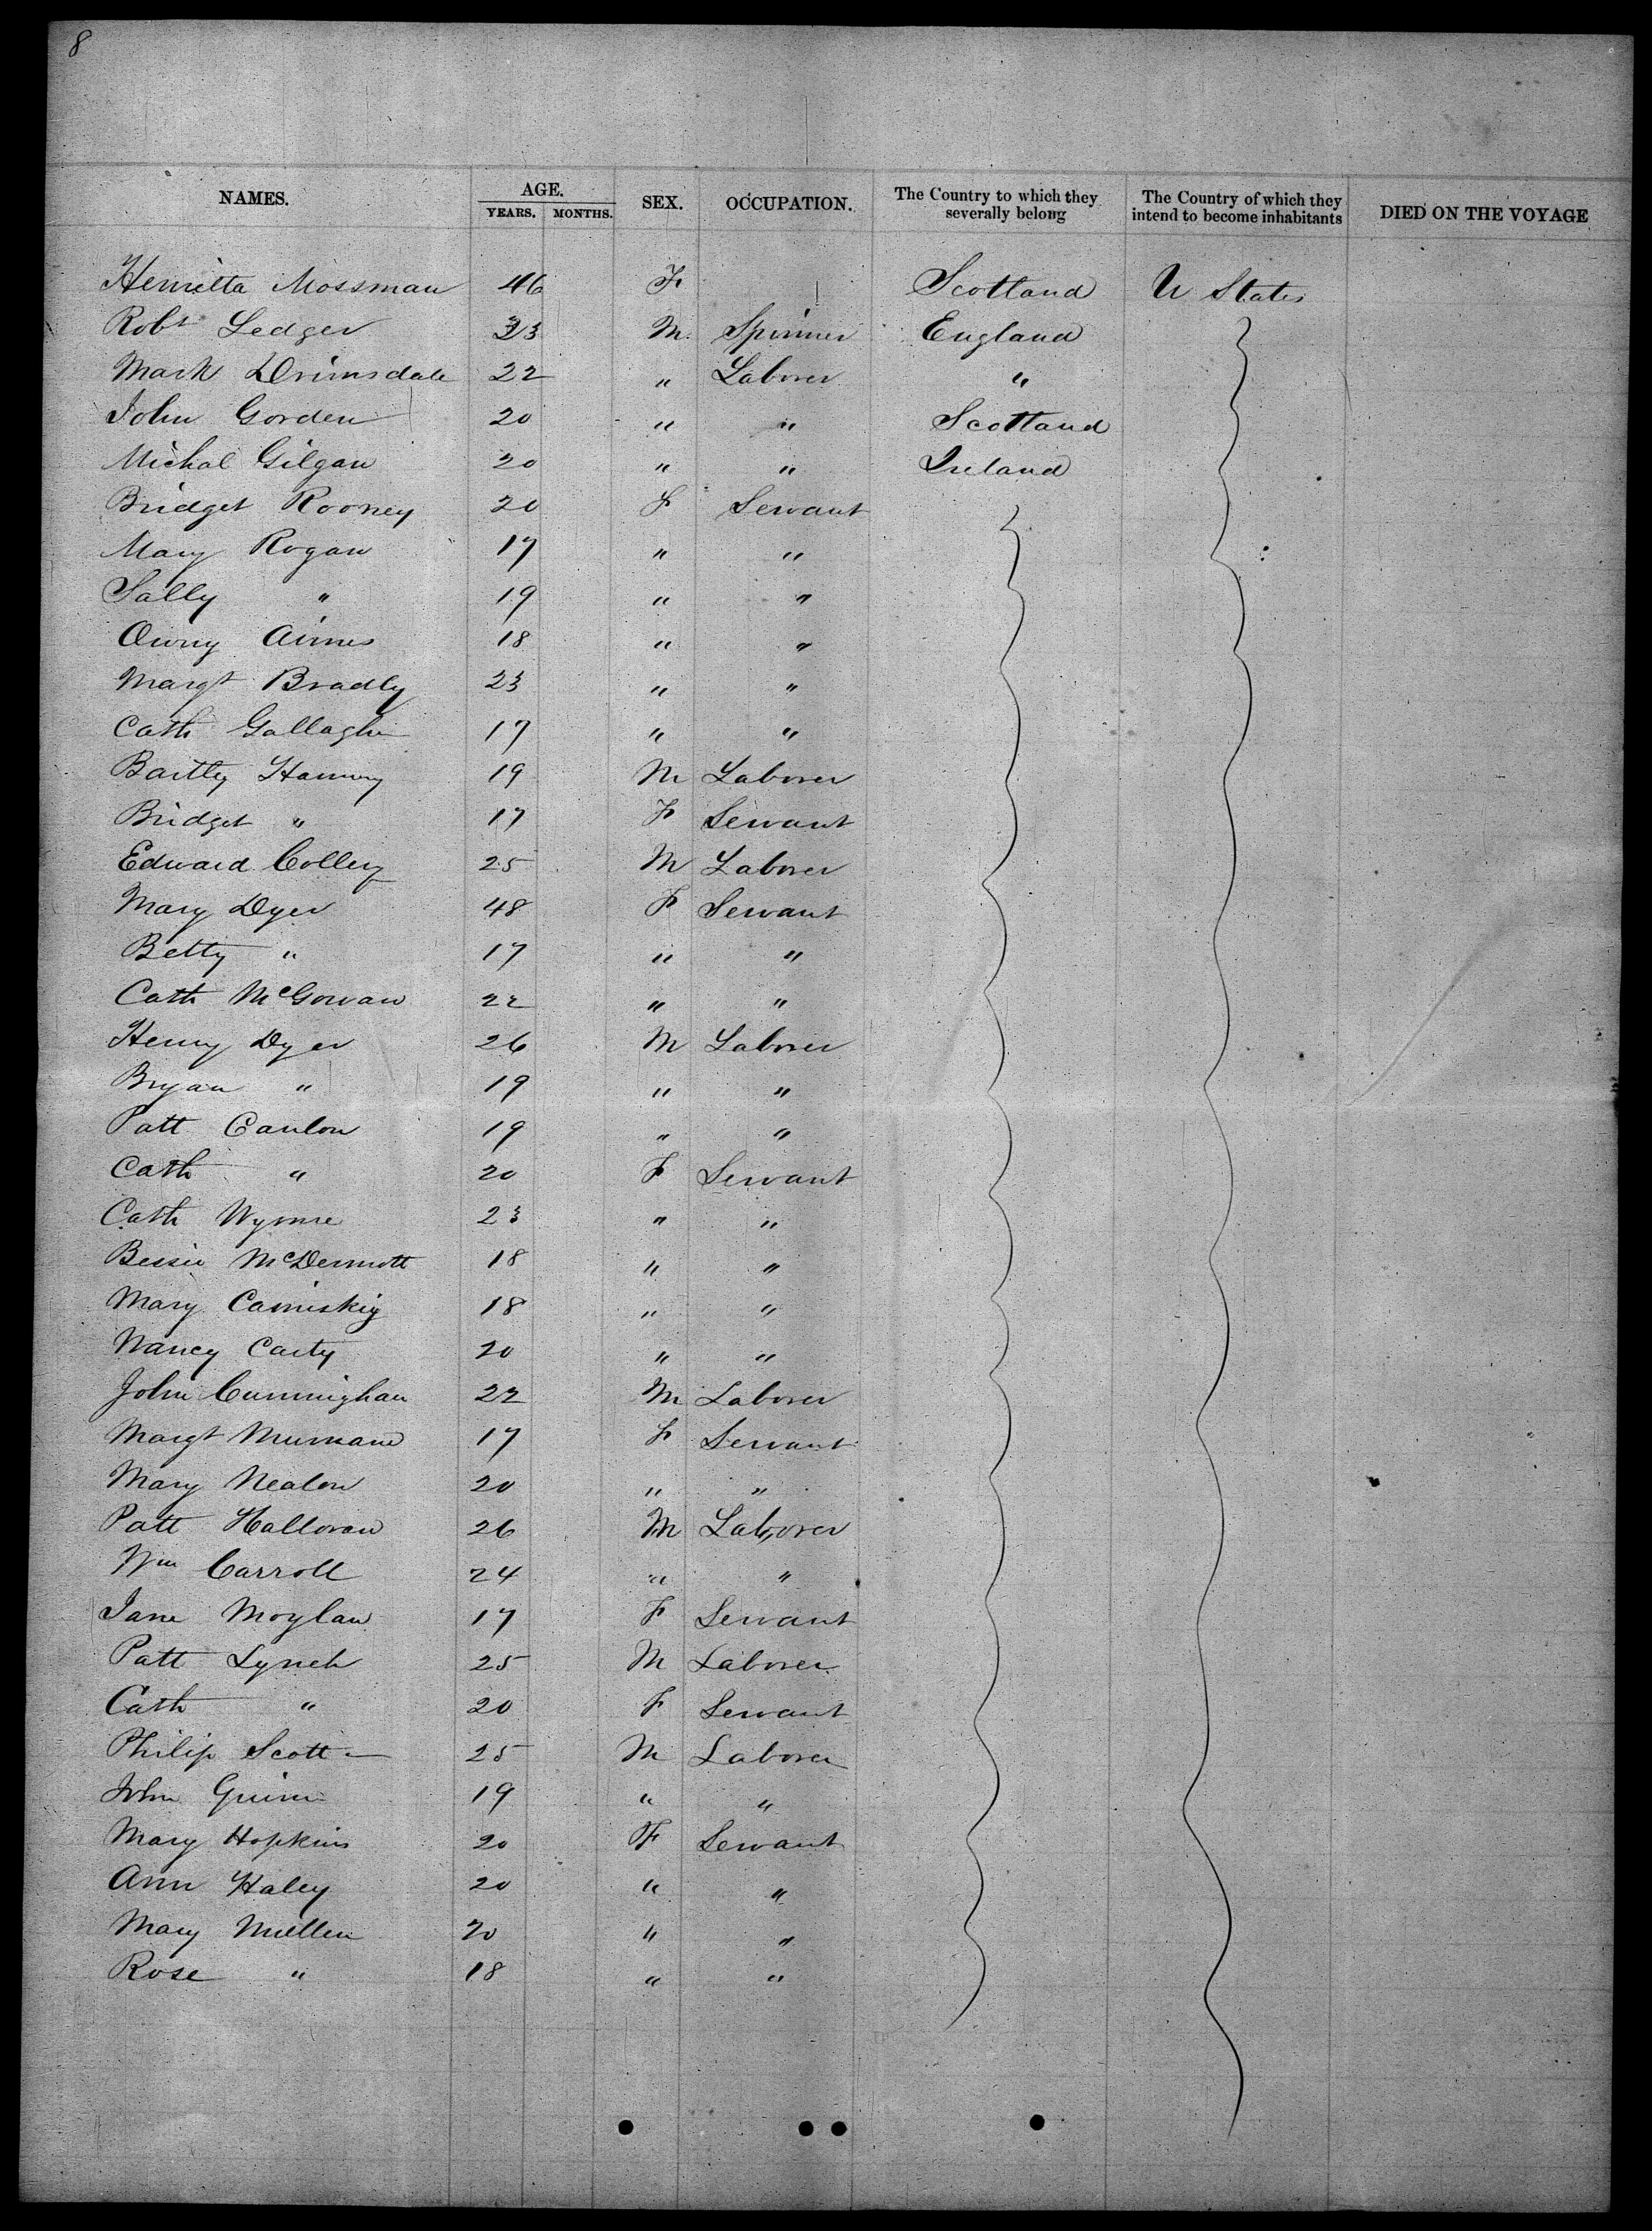 8
NAMES. AGE. YEARS. MONTHS. SEX. OCCUPATION. The Country to which they severally belong The Country of which they intend to become inhabitants DIED ON THE VOYAGE
Henrietta Mossman 46 F Scotland U States
Robt Ledger 23 M. Spinner England
Mark Drimsdale 22 " Laborer "
John Gorden 20 " " Scotland
Michal Gilgan 20 " " Ireland
Bridget Rooney 20 F Servant
Mary Rogan 17 " "
Sally " 19 " "
18 " "
Margt Bradly 23 " "
Cath Gallagher 17 " "
Bartley 19 M Laborer
Bridget " 17 F Servant
Edward Collery 25 M Laborer
Mary Dyer 48 F Servant
Betty " 17 " "
Cath McGowan 22 " "
Henry Dyer 26 M Laborer
Bryan " 19 " "
Patt Canlon 19 " "
Cath " 20 F Servant
Cath Wynne 23 " "
Bessie McDermott 18 " "
Mary Camiskey 18 " "
Nancy Carty 20 " "
John Cunningham 22 M Laborer
Margt Murnane 17 F Servant
Mary Nealon 20 " "
Patt Halloran 26 M Laborer
Wm Carroll 24 " "
Jane Moylan 17 F Servant
Patt Lynch 25 M Laborer
Cath " 20 F Servant
Philip Scott 25 M Laborer
John Quinn 19 " "
Mary Hopkins 20 F Servant
Ann Haley 20 " "
Mary Mullen 20 " "
Rose " 18 " "